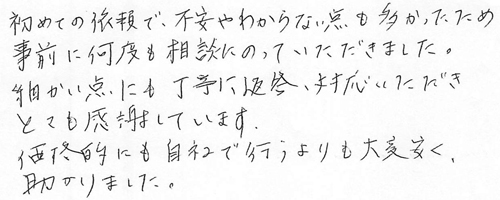 初めての依頼で、不安やわからない点も多かったため
事前に何度も相談にのっていただきました。
細かい点にも丁寧に返答、対応いただき
とても感謝しています。
価格的にも自社で行うよりも大変安く、
助かりました。